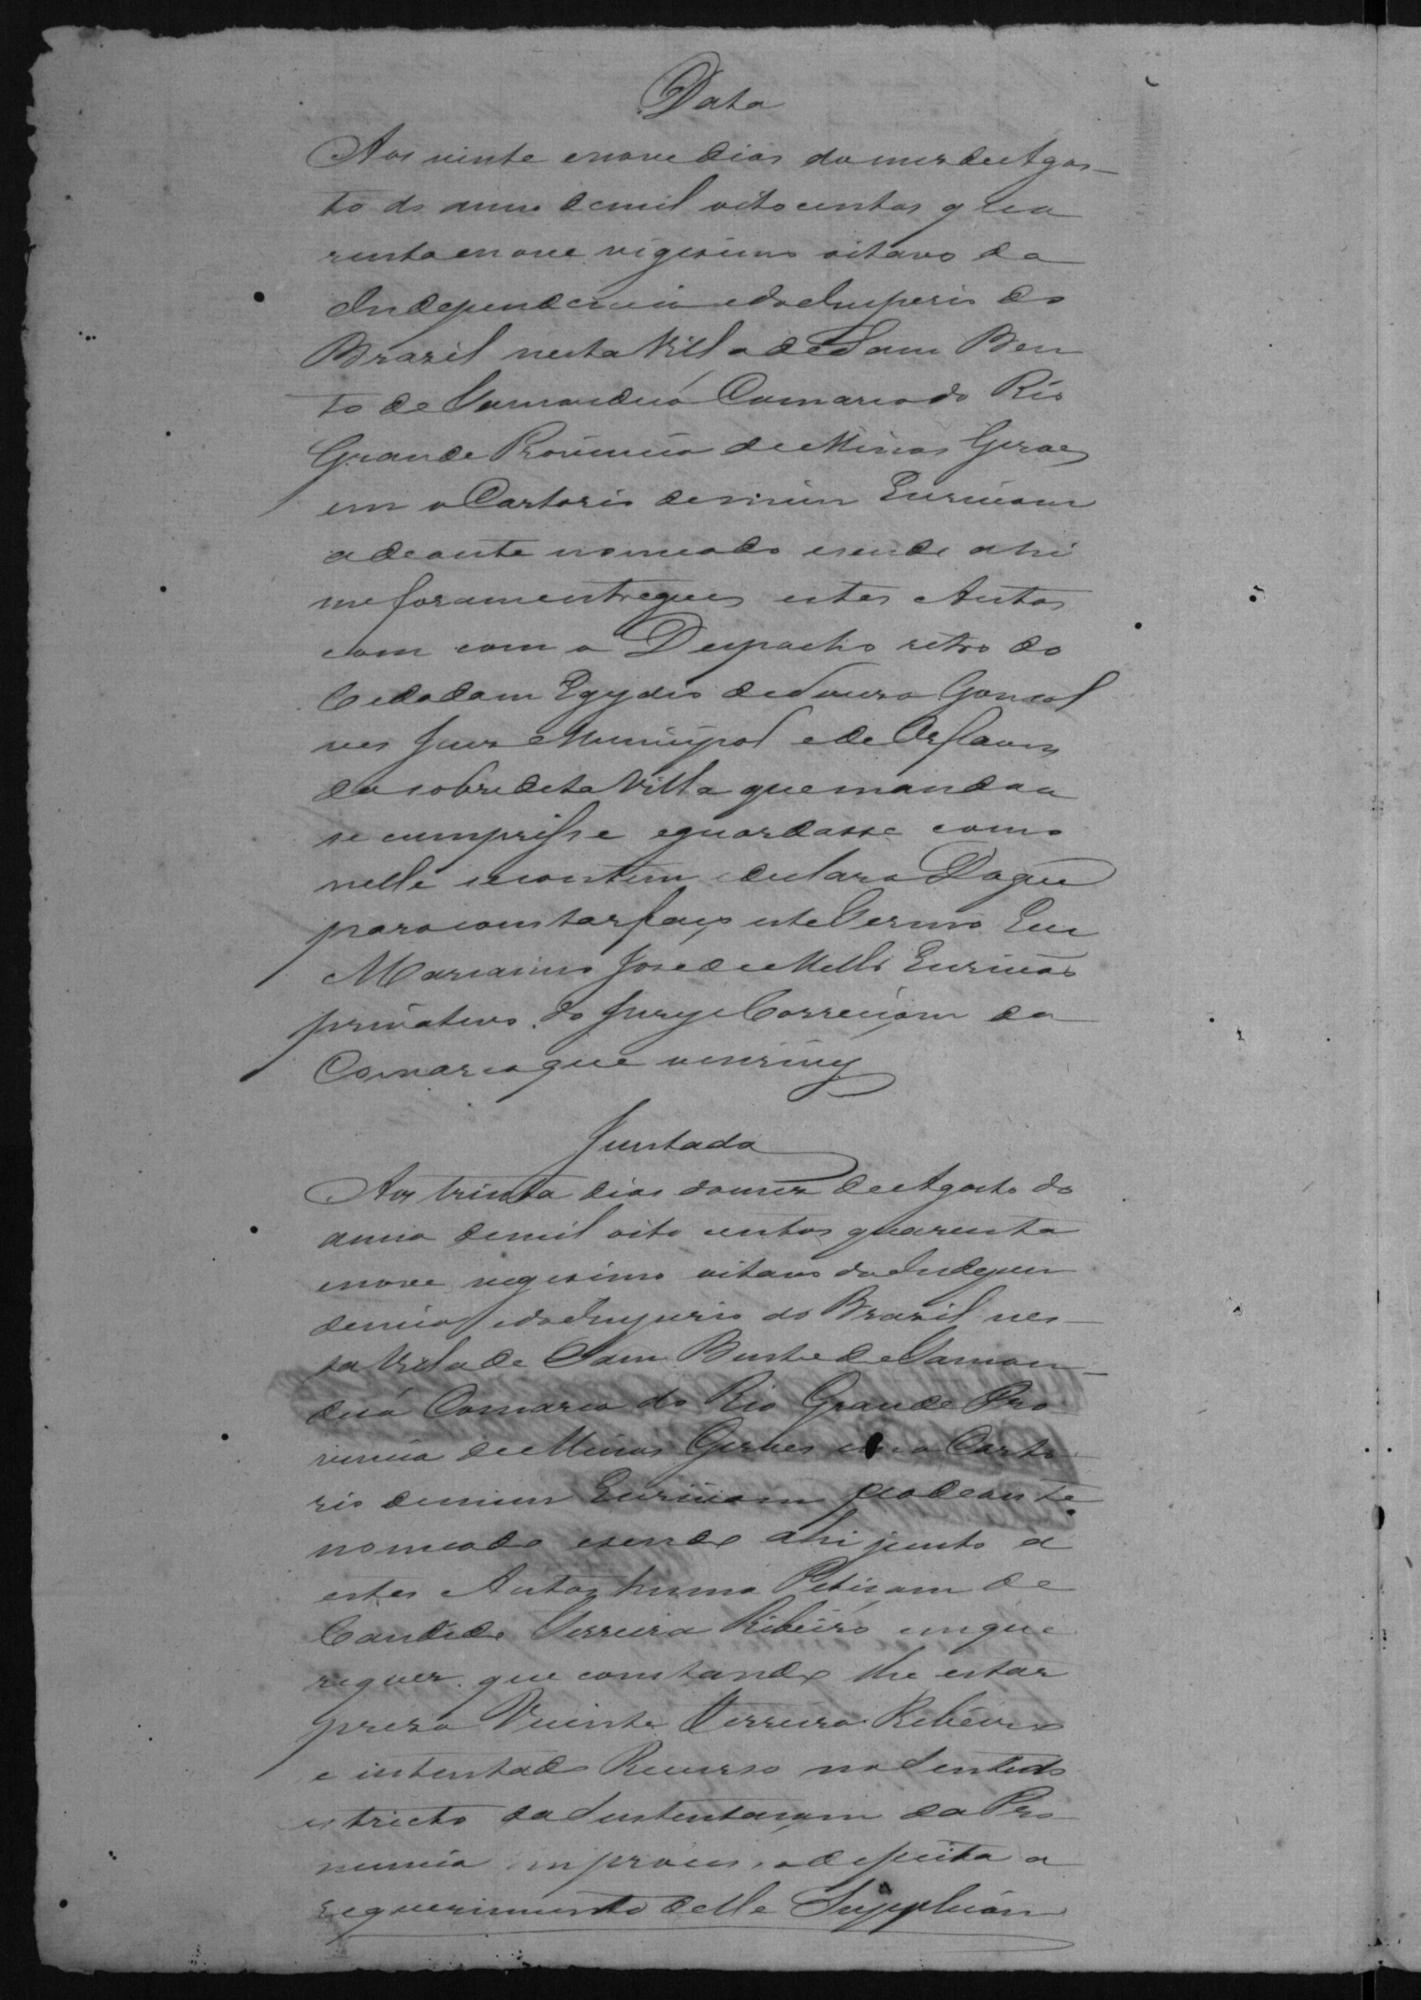 Data
Aos vinte enove dias do mes de Agos_
to do anno demil oito centos qua
renta enove vigesimo oitavo da
Independencia edo Imperio do
Brazil nesta Villa de Sam Ben
to de Tamanduá Comarca do Rio
Grande Provincia de Minas Geraes
em o Cartorio demim Escrivam
adeante nomeado esendo ahi
me foram entregues estes Autos
com com o Despacho retro do
Cidadam Egydio de Souza Gonsal
ves Juiz Municipal e de Orfaons
da sobredita Villa que mandou
se cumprisse eguardasse como
nelle secontem edeclara Doque
para constar faço este Termo Eu
Marianno José de Mello Escrivão
privativo do Jury e Correiçam da
Comarca que oescrivy
Juntada
Aos trinta dias domez de Agosto do
anno demil oito centos quarenta
enove, vegesimo oitavo da Indepen
dencia edo Imperio do Brazil nes_
ta Villa de Sam Bento de Taman_
duá Comarca do Rio Grande Pro
vincia de Minas Geraes em o Carto
rio demim Escrivam adeante
nomeado esendo ahi junto a
estes Autos huma Petiçam de
Candido Ferreira Ribeiro em que
requer que constando lhe estar
prezo Vicente Ferreira Ribeiro
e intentado Recurso no Sentido
estricto da Sustentaçam da Pro
nuncia em processo de queixa a
requerimento delle Supplican